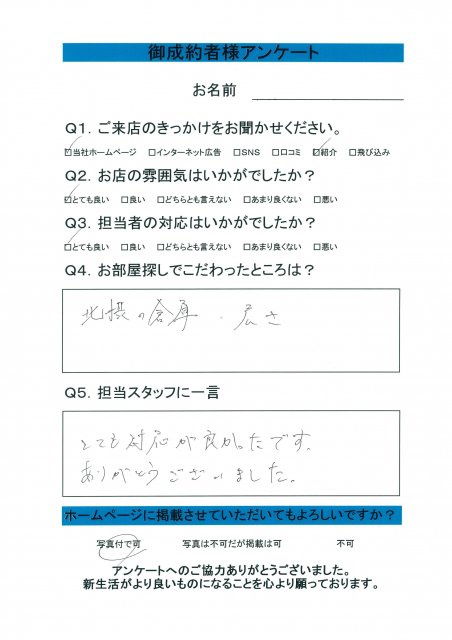 御成約者様アンケート
お名前
Q1. ご来店のきっかけをお聞かせください。
☑当社ホームページ □インターネット広告 □SNS □口コミ ☑紹介 □飛び込み
Q2. お店の雰囲気はいかがでしたか？
☑とても良い □良い □どちらとも言えない □あまり良くない □悪い
Q3. 担当者の対応はいかがでしたか？
☑とても良い □良い □どちらとも言えない □あまり良くない □悪い
Q4. お部屋探しでこだわったところは？
北摂の倉庫 ・ 広さ
Q5. 担当スタッフに一言
とても対応が良かったです。
ありがとうございました。
ホームページに掲載させていただいてもよろしいですか？
写真付で可 写真は不可だが掲載は可 不可
アンケートへのご協力ありがとうございました。
新生活がより良いものになることを心より願っております。